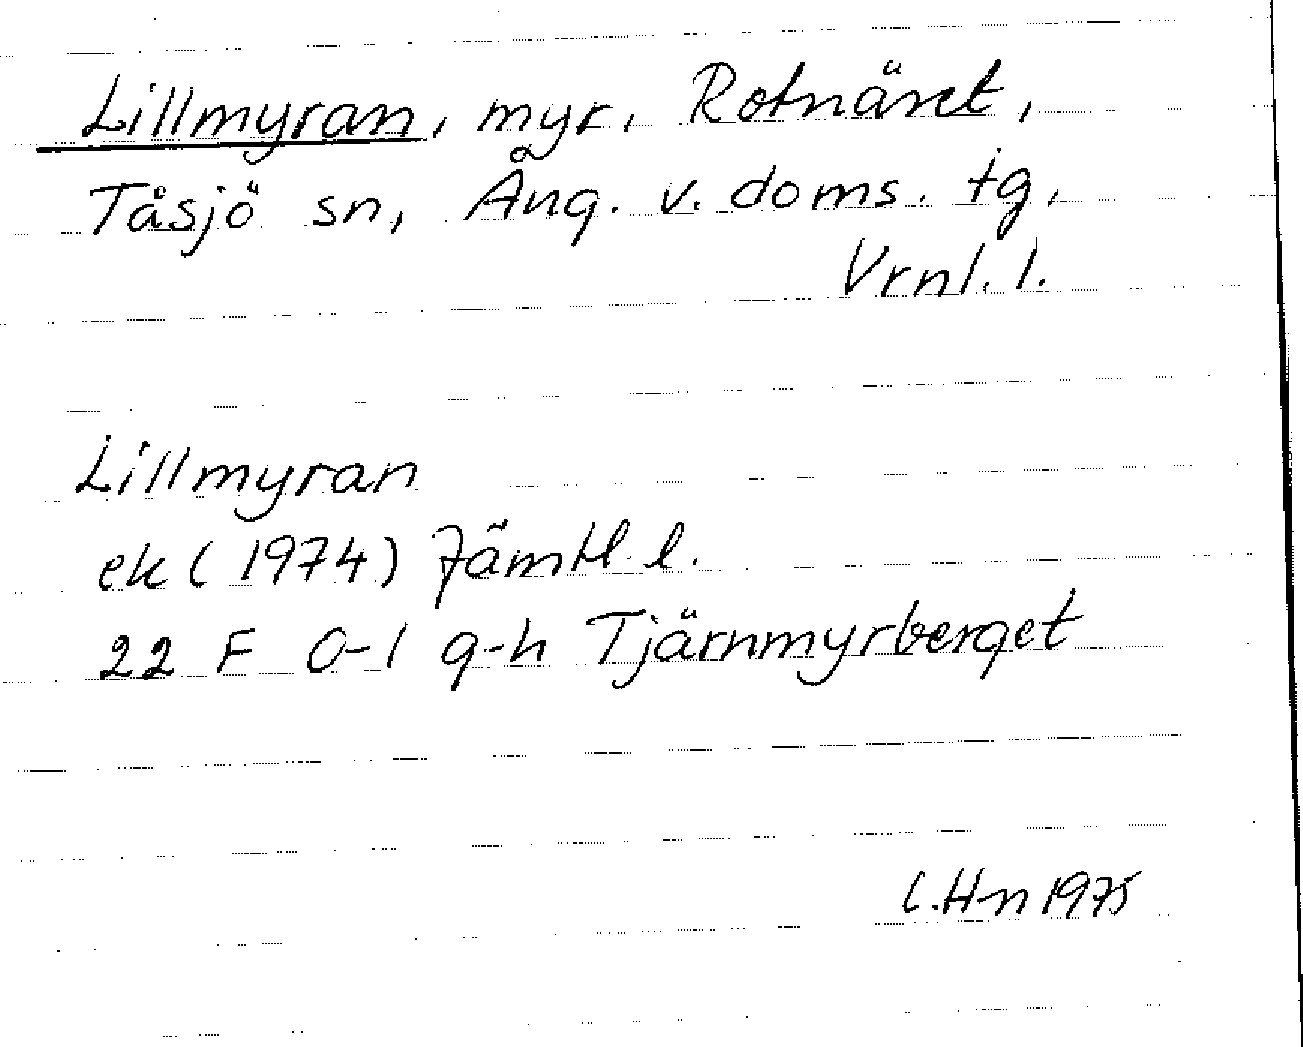 Lillmyran, myr, Rotnäset,
Tåsjö sn, Ång. v. doms. tg,
Vrnl. l.
Lillmyran
ek (1974) Jämtl. l.
22 F 0-1 g-h Tjärnmyrberget
C.Hn 1975